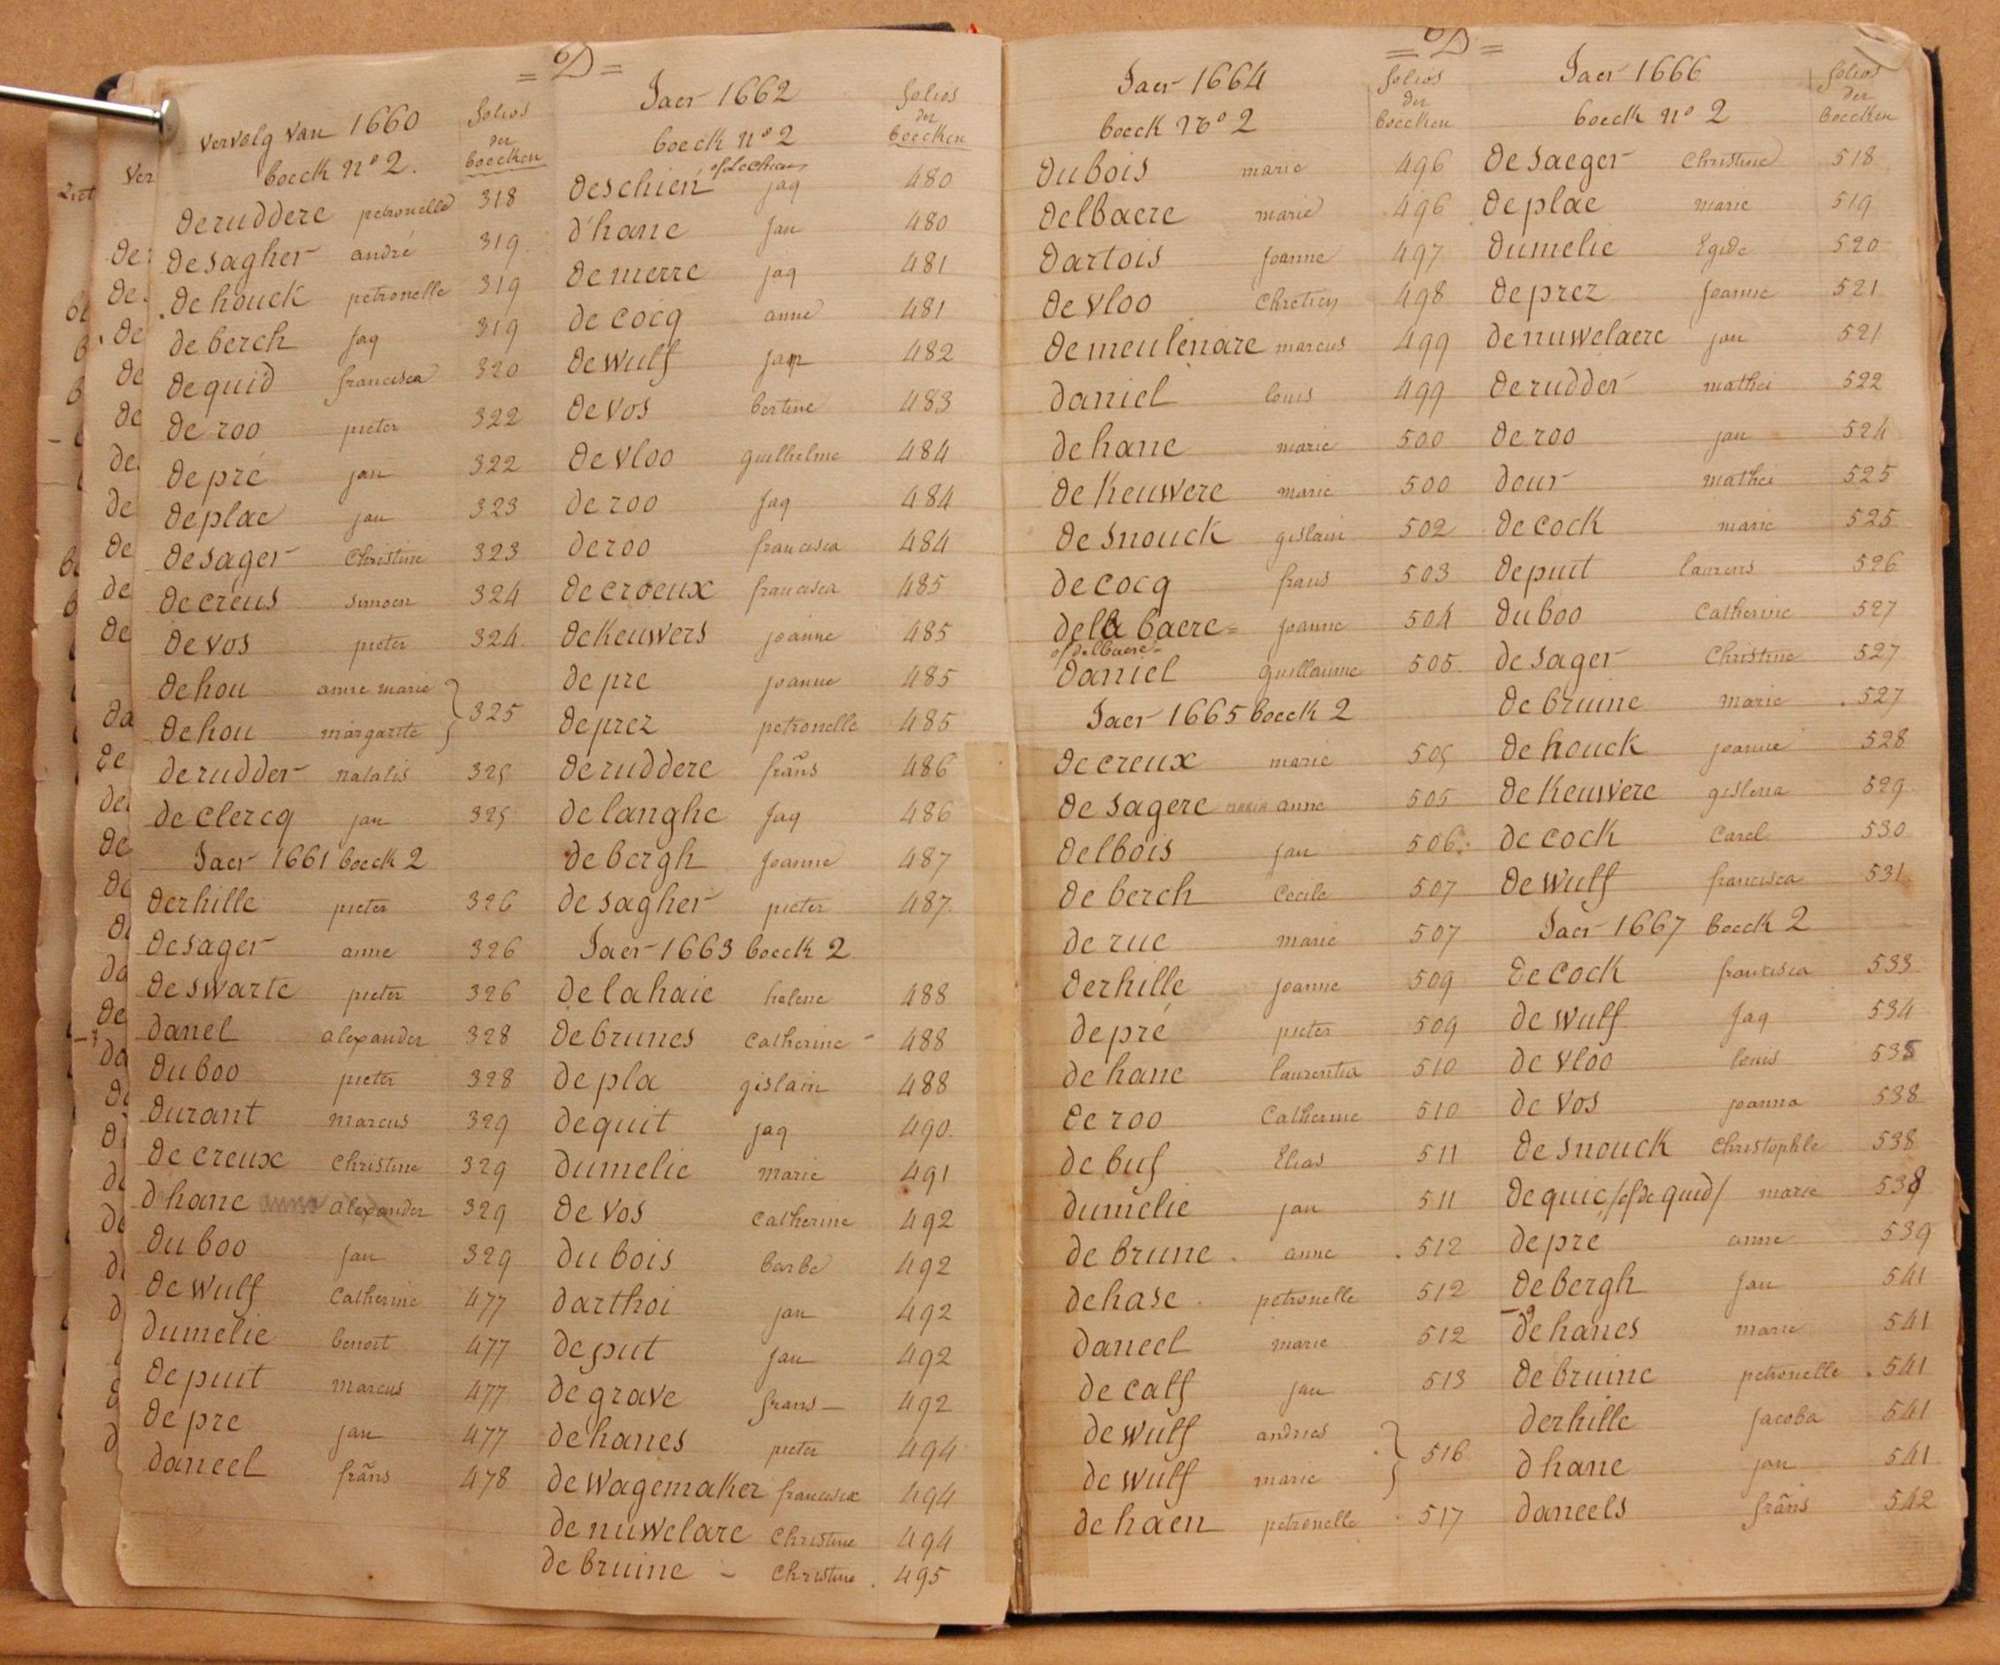 = D =
vervolg van 1660
boeck nº 2.
folios
der
boecken
deruddere petronelle 318
desagher andré 319
de houck petronelle 319
de berch jaq 319
de quid francisca 320
de roo pieter 322
de pré jan 322
de plae jan 323
de sager Christine 323
de creus simoen 324
de vos pieter 324
de hou anne marie
de hou margarite } 325
de rudder natalis 325
de clercq jan 325
Jaer 1661 boeck 2
derhille pieter 326
desager anne 326
de swarte pieter 326
danel alexander 328
duboo pieter 328
durant marcus 329
de creux Christine 329
dhane anna alexander 329
du boo jan 329
de wulf Catherine 477
dumelie benoit 477
de puit marcus 477
de pre jan 477
daneel frans 478
Jaer 1662
boeck nº 2
folios
der
boecken
deschien of Lechien jaq 480
d'hane jan 480
de merre jaq 481
de cocq anne 481
de wulf jan 482
de vos bertine 483
de vloo guilhelme 484
de roo jaq 484
de roo francisca 484
de croeux francisca 485
de keuwers joanne 485
de pre joanne 485
de prez petronelle 485
de ruddere frans 486
de langhe jaq 486
de bergh joanne 487
de sagher pieter 487
Jaer 1663 boeck 2
de la haie helene 488
de brunes Catherine 488
de pla gislain 488
de quit jaq 490
dumelie marie 491
de vos Catherine 492
du bois barbe 492
darthoi jan 492
de put jan 492
de grave frans 492
de hanes pieter 494
de wagemaker francisca 494
de nuwelare Christine 494
de bruine - Christine 495
= D =
Jaer 1664
boeck nº 2
folios
der
boecken
dubois marie 496
delbaere marie 496
dartois joanne 497
de vloo Chretien 498
de meulenare marcus 499
daniel louis 499
de hane marie 500
de keuwere marie 500
de snouck gislain 502
de cocq frans 503
dela baere = joanne 504
of delbaere =
daniel guillaume 505
Jaer 1665 boeck 2
de creux marie 505
de sagere maria anne 505
delbois jan 506
de berch Cecile 507
de rue marie 507
derhille joanne 509
de pré pieter 509
de hane laurentia 510
de roo Catherine 510
de buf Elias 511
dumelie jan 511
de brune anne 512
de hase petronelle 512
daneel marie 512
de calf jan 513
de wulf andries
de wulf marie } 516
de haen petronelle 517
Jaer 1666
boeck nº 2
folios
der
boecken
de saeger Christine 518
de plae marie 519
dumelie Egide 520
de prez joanne 521
de nuwelaere jan 521
de rudder mathei 522
de roo jan 524
deur mathei 525
de cock marie 525
de puit laurens 526
du boo Catherine 527
de sager Christine 527
de bruine marie 527
de houck joanne 528
de keuwere gislena 529
de cock Carel 530
de wulf francisca 531
Jaer 1667 boeck 2
de cock francisca 533
de wulf jaq 534
de vloo louis 535
de vos joanna 538
de snouck Christophle 538
de quic /of de quid/ marie 538
de pré anne 539
de bergh jan 541
de hanes marie 541
de bruine petronelle 541
derhille jacoba 541
dhane jan 541
daneels frans 542